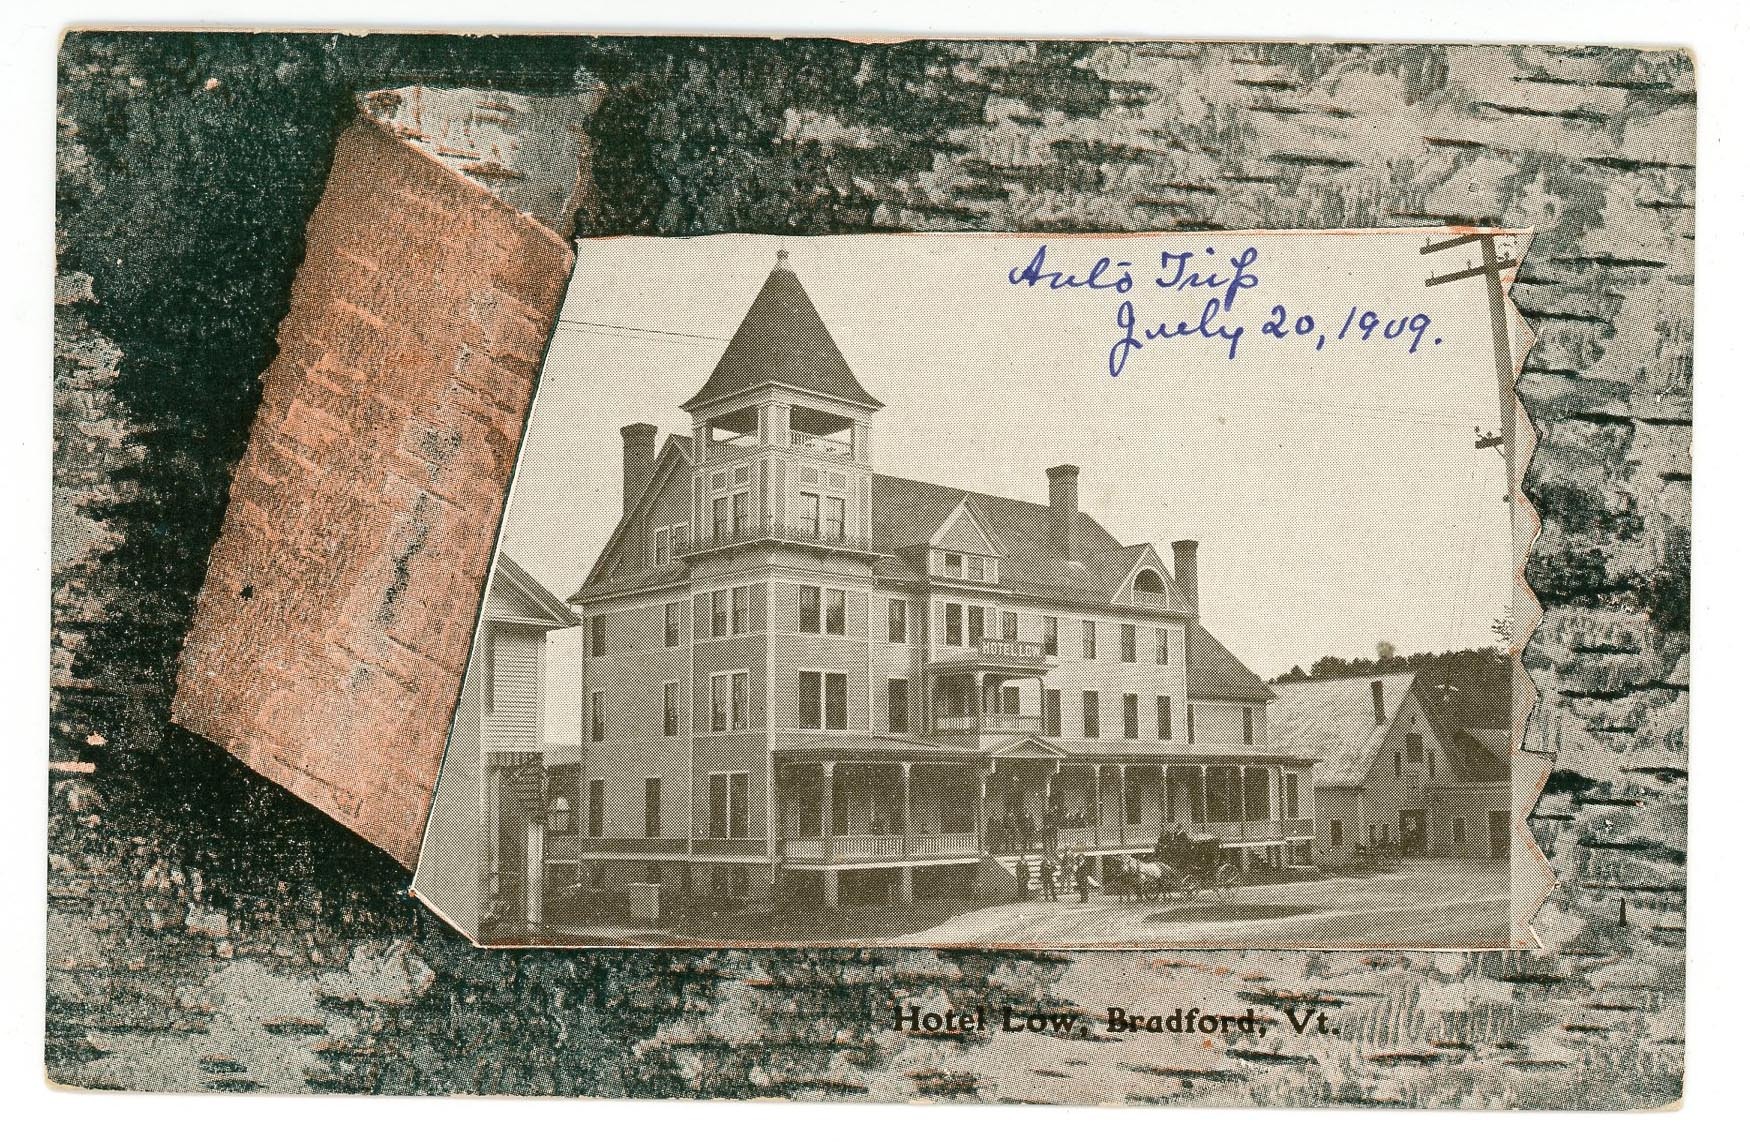 Auto Trip
July 20, 1909.
HOTEL LOW
Hotel Low, Bradford, Vt.